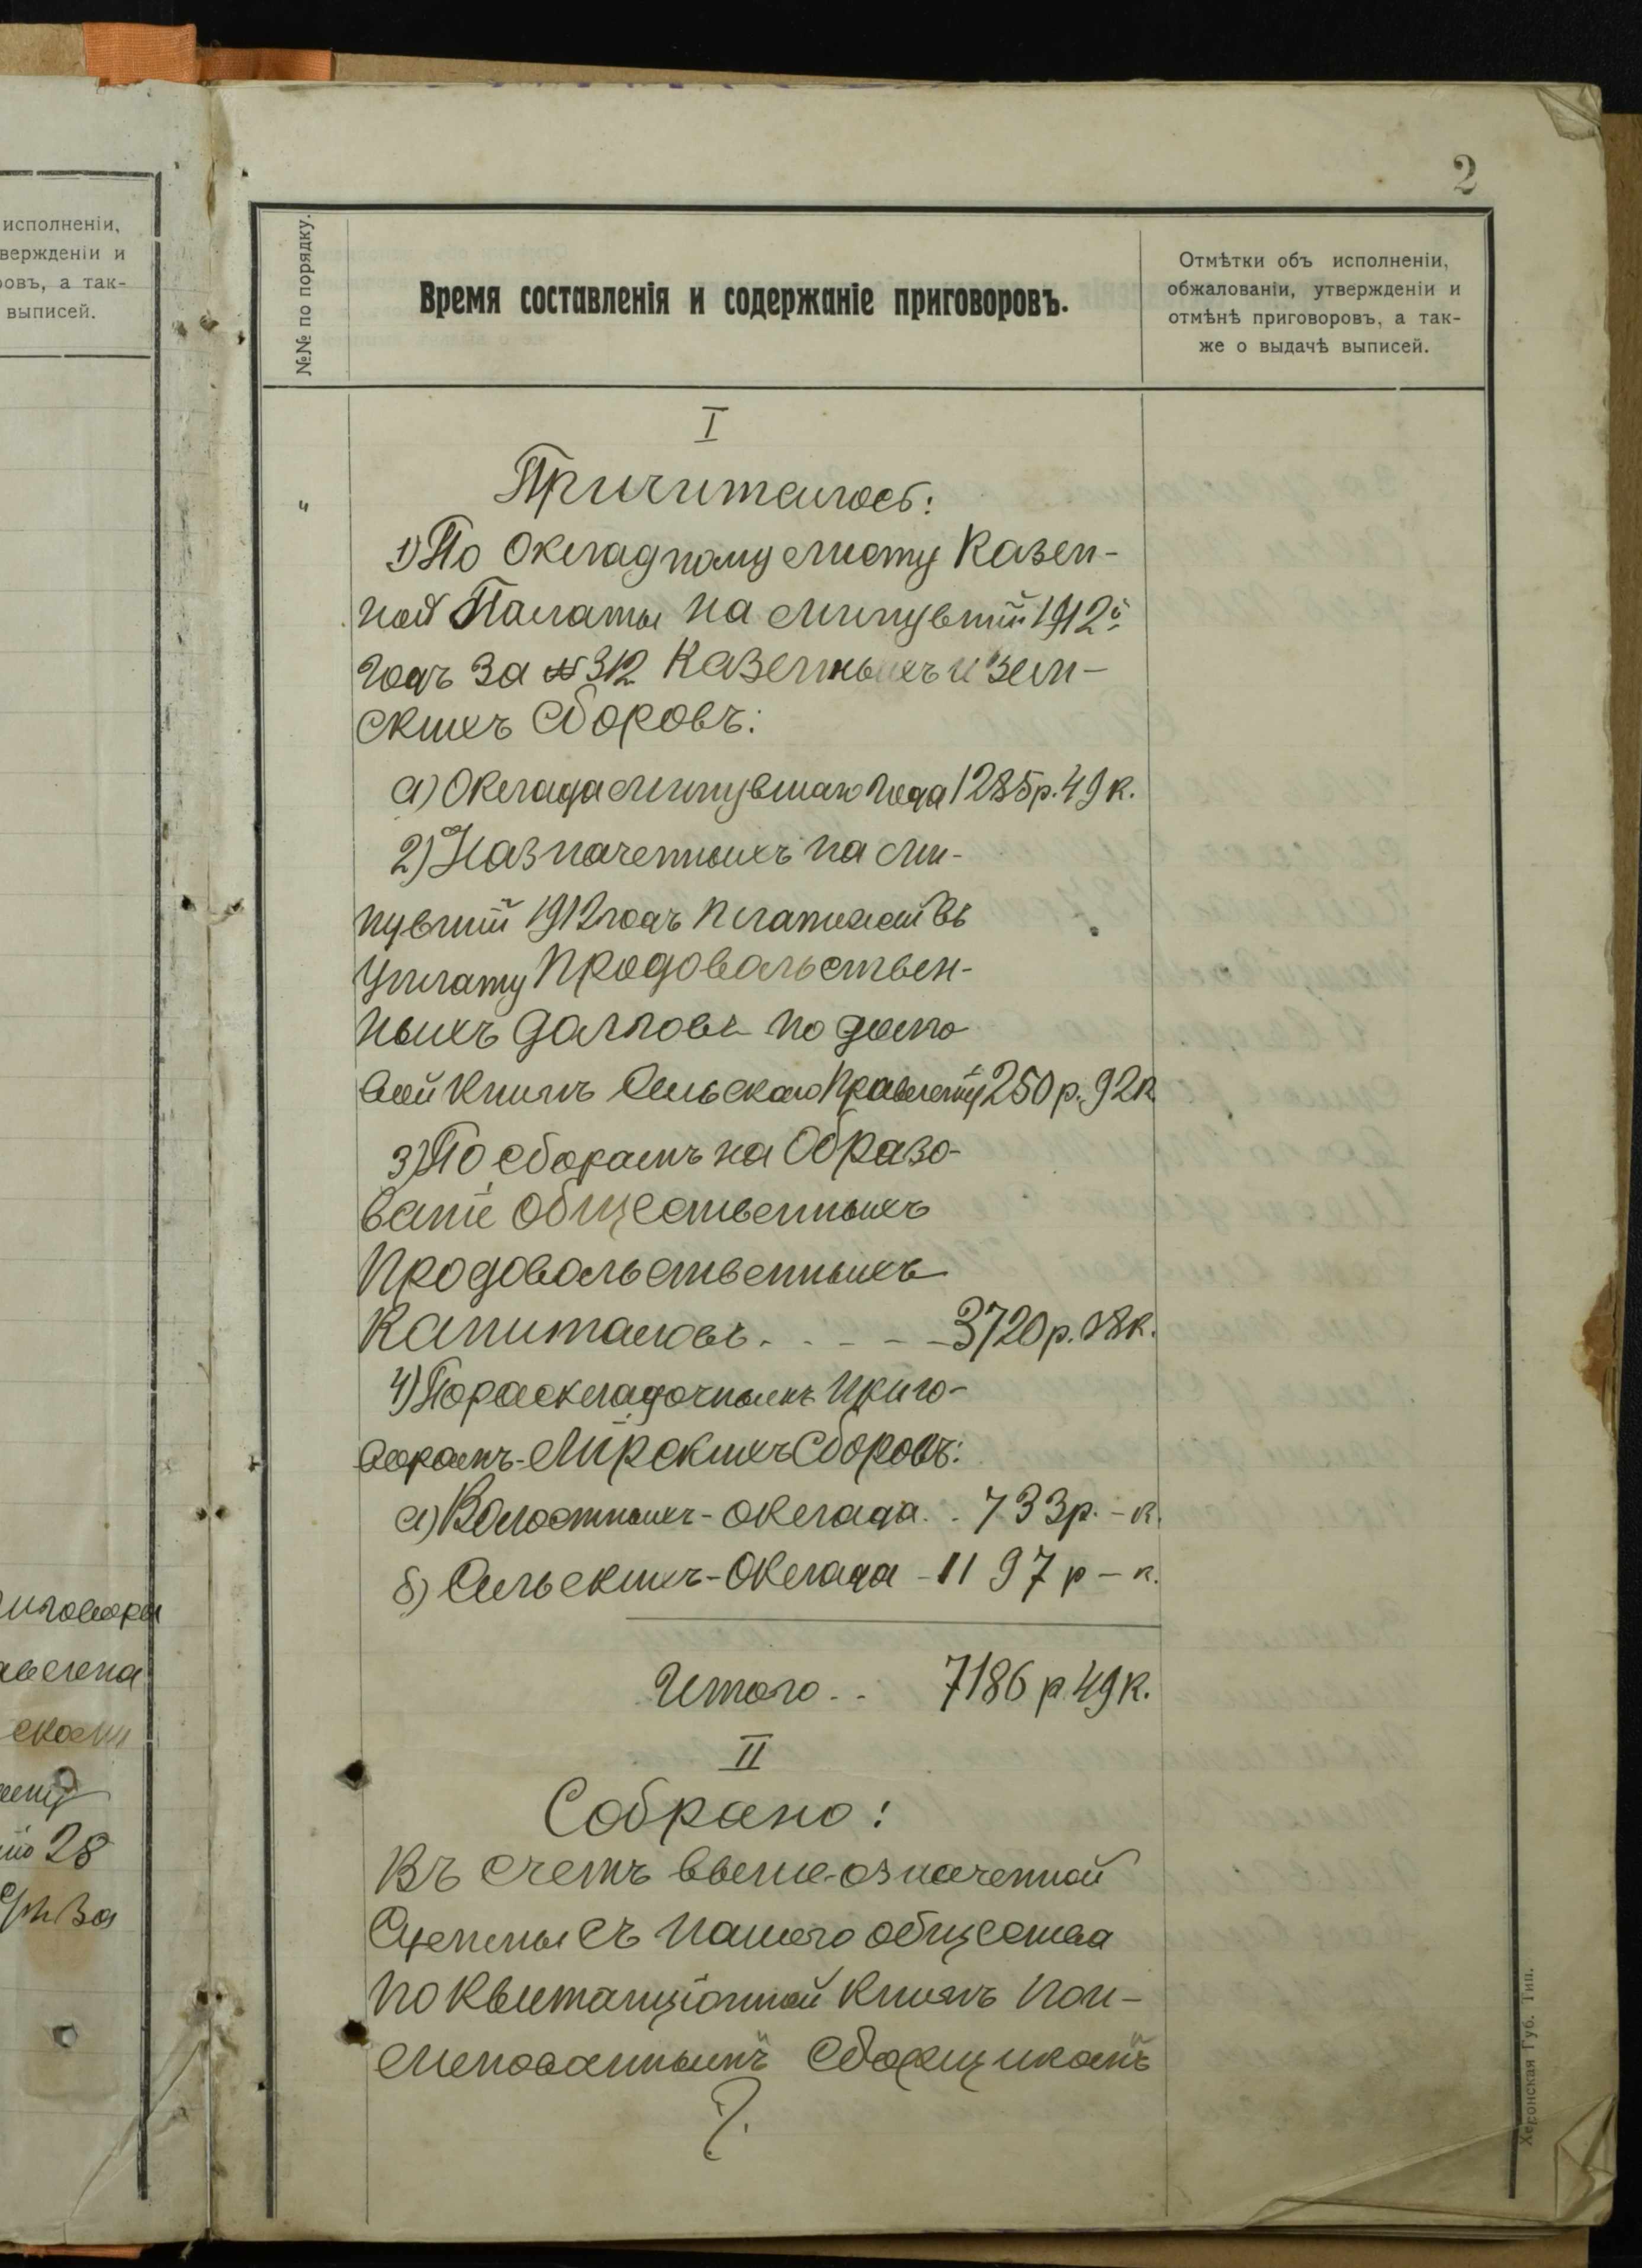 исполненіи,
вержденіи и
ровъ, а так-
выписей.
иговора
авлена
скаго
28
за
2
№№ по порядку.
Время составленія и содержаніе приговоровъ.
Отмѣтки объ исполненіи,
обжалованіи, утвержденіи и
отмѣнѣ приговоровъ, а так-
же о выдачѣ выписей.
I
"
Причиталось:
1) По окладному листу Казен-
ной Палаты на минувшій 1912й
годъ за № 312 Казенныхъ и зем-
скихъ сборовъ:
а) Оклада минувшаго года 1285р. 49к.
2) Назначенныхъ на ми-
нувшій 1912 годъ платежей въ
уплату продовольствен-
ныхъ долговъ по долго
вой книгѣ Сельскаго Правленія 250 р. 92к
3) По сборамъ на образо-
ваніе общественныхъ
продовольственныхъ
капиталовъ . . - - 3720р. 08к.
4) По раскладочнымъ приго-
ворамъ - Мірскихъ сборовъ:
а) Волостныхъ - оклада . . 733р. - к.
б) Сельскихъ - оклада - 1197 р - к.
Итого . . 7186 р. 49к.
II
Собрано:
Въ счетъ выше-означенной
Суммы съ нашего общества
по квитанціонной книгѣ пои-
менованнымъ сборщикомъ
Херсонская Губ. Тип.